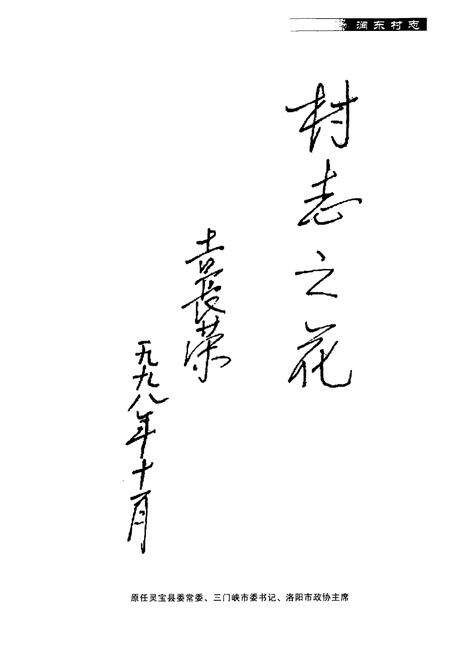 涧东村志
村志之花
吉長荣
一九九八年十一月
原任灵宝县委常委、三门峡市委书记、洛阳市政协主席